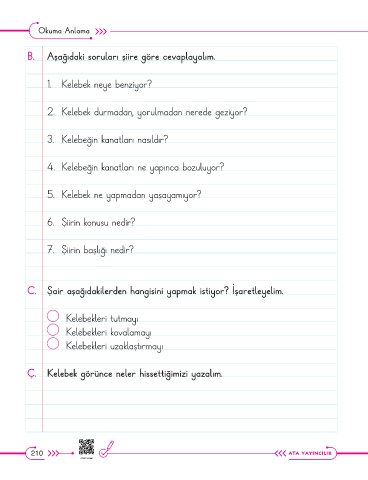 Okuma Anlama
B. Aşağıdaki soruları şiire göre cevaplayalım.
1. Kelebek neye benziyor?
2. Kelebek durmadan, yorulmadan nerede geziyor?
3. Kelebeğin kanatları nasıldır?
4. Kelebeğin kanatları ne yapınca bozuluyor?
5. Kelebek ne yapmadan yaşayamıyor?
6. Şiirin konusu nedir?
7. Şiirin başlığı nedir?
C. Şair aşağıdakilerden hangisini yapmak istiyor? İşaretleyelim.
Kelebekleri tutmayı
Kelebekleri kovalamayı
Kelebekleri uzaklaştırmayı
Ç. Kelebek görünce neler hissettiğimizi yazalım.
210
ATA YAYINCILIK